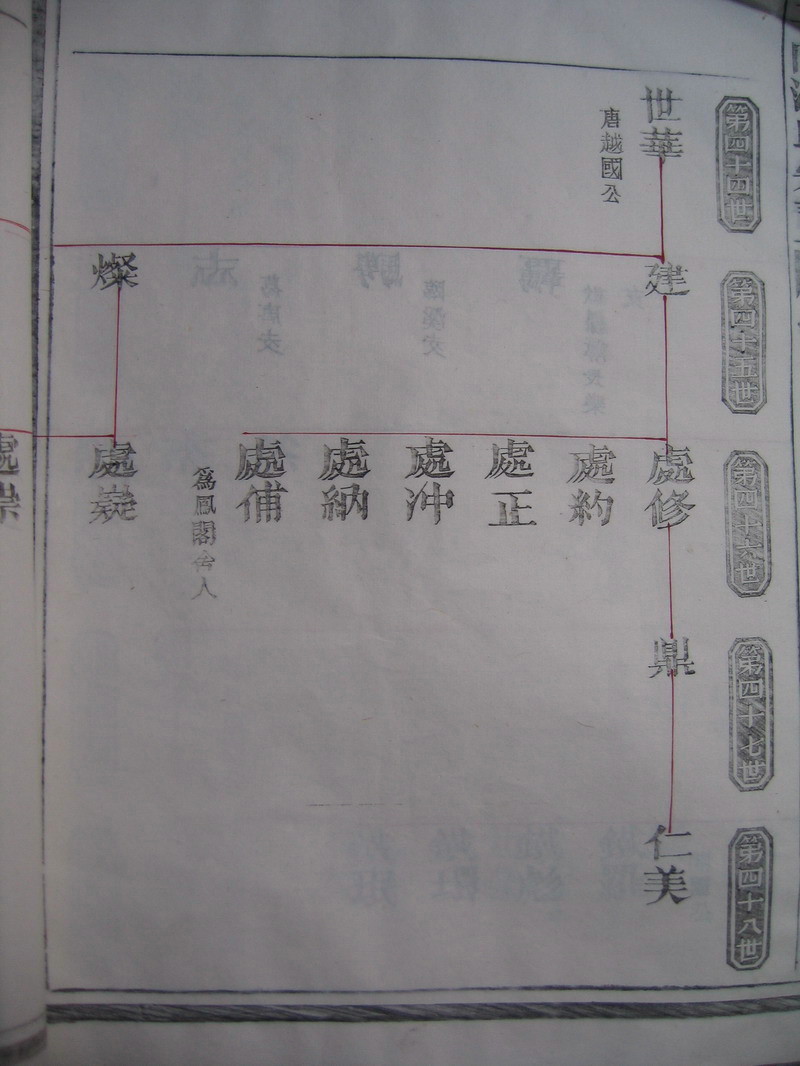 第四十四世
世華
唐越國公
第四十五世
建
燦
第四十六世
處修
處約
處正
處沖
處納
處俌
爲鳳閣舍人
處嶷
處崇
第四十七世
鼎
第四十八世
仁美